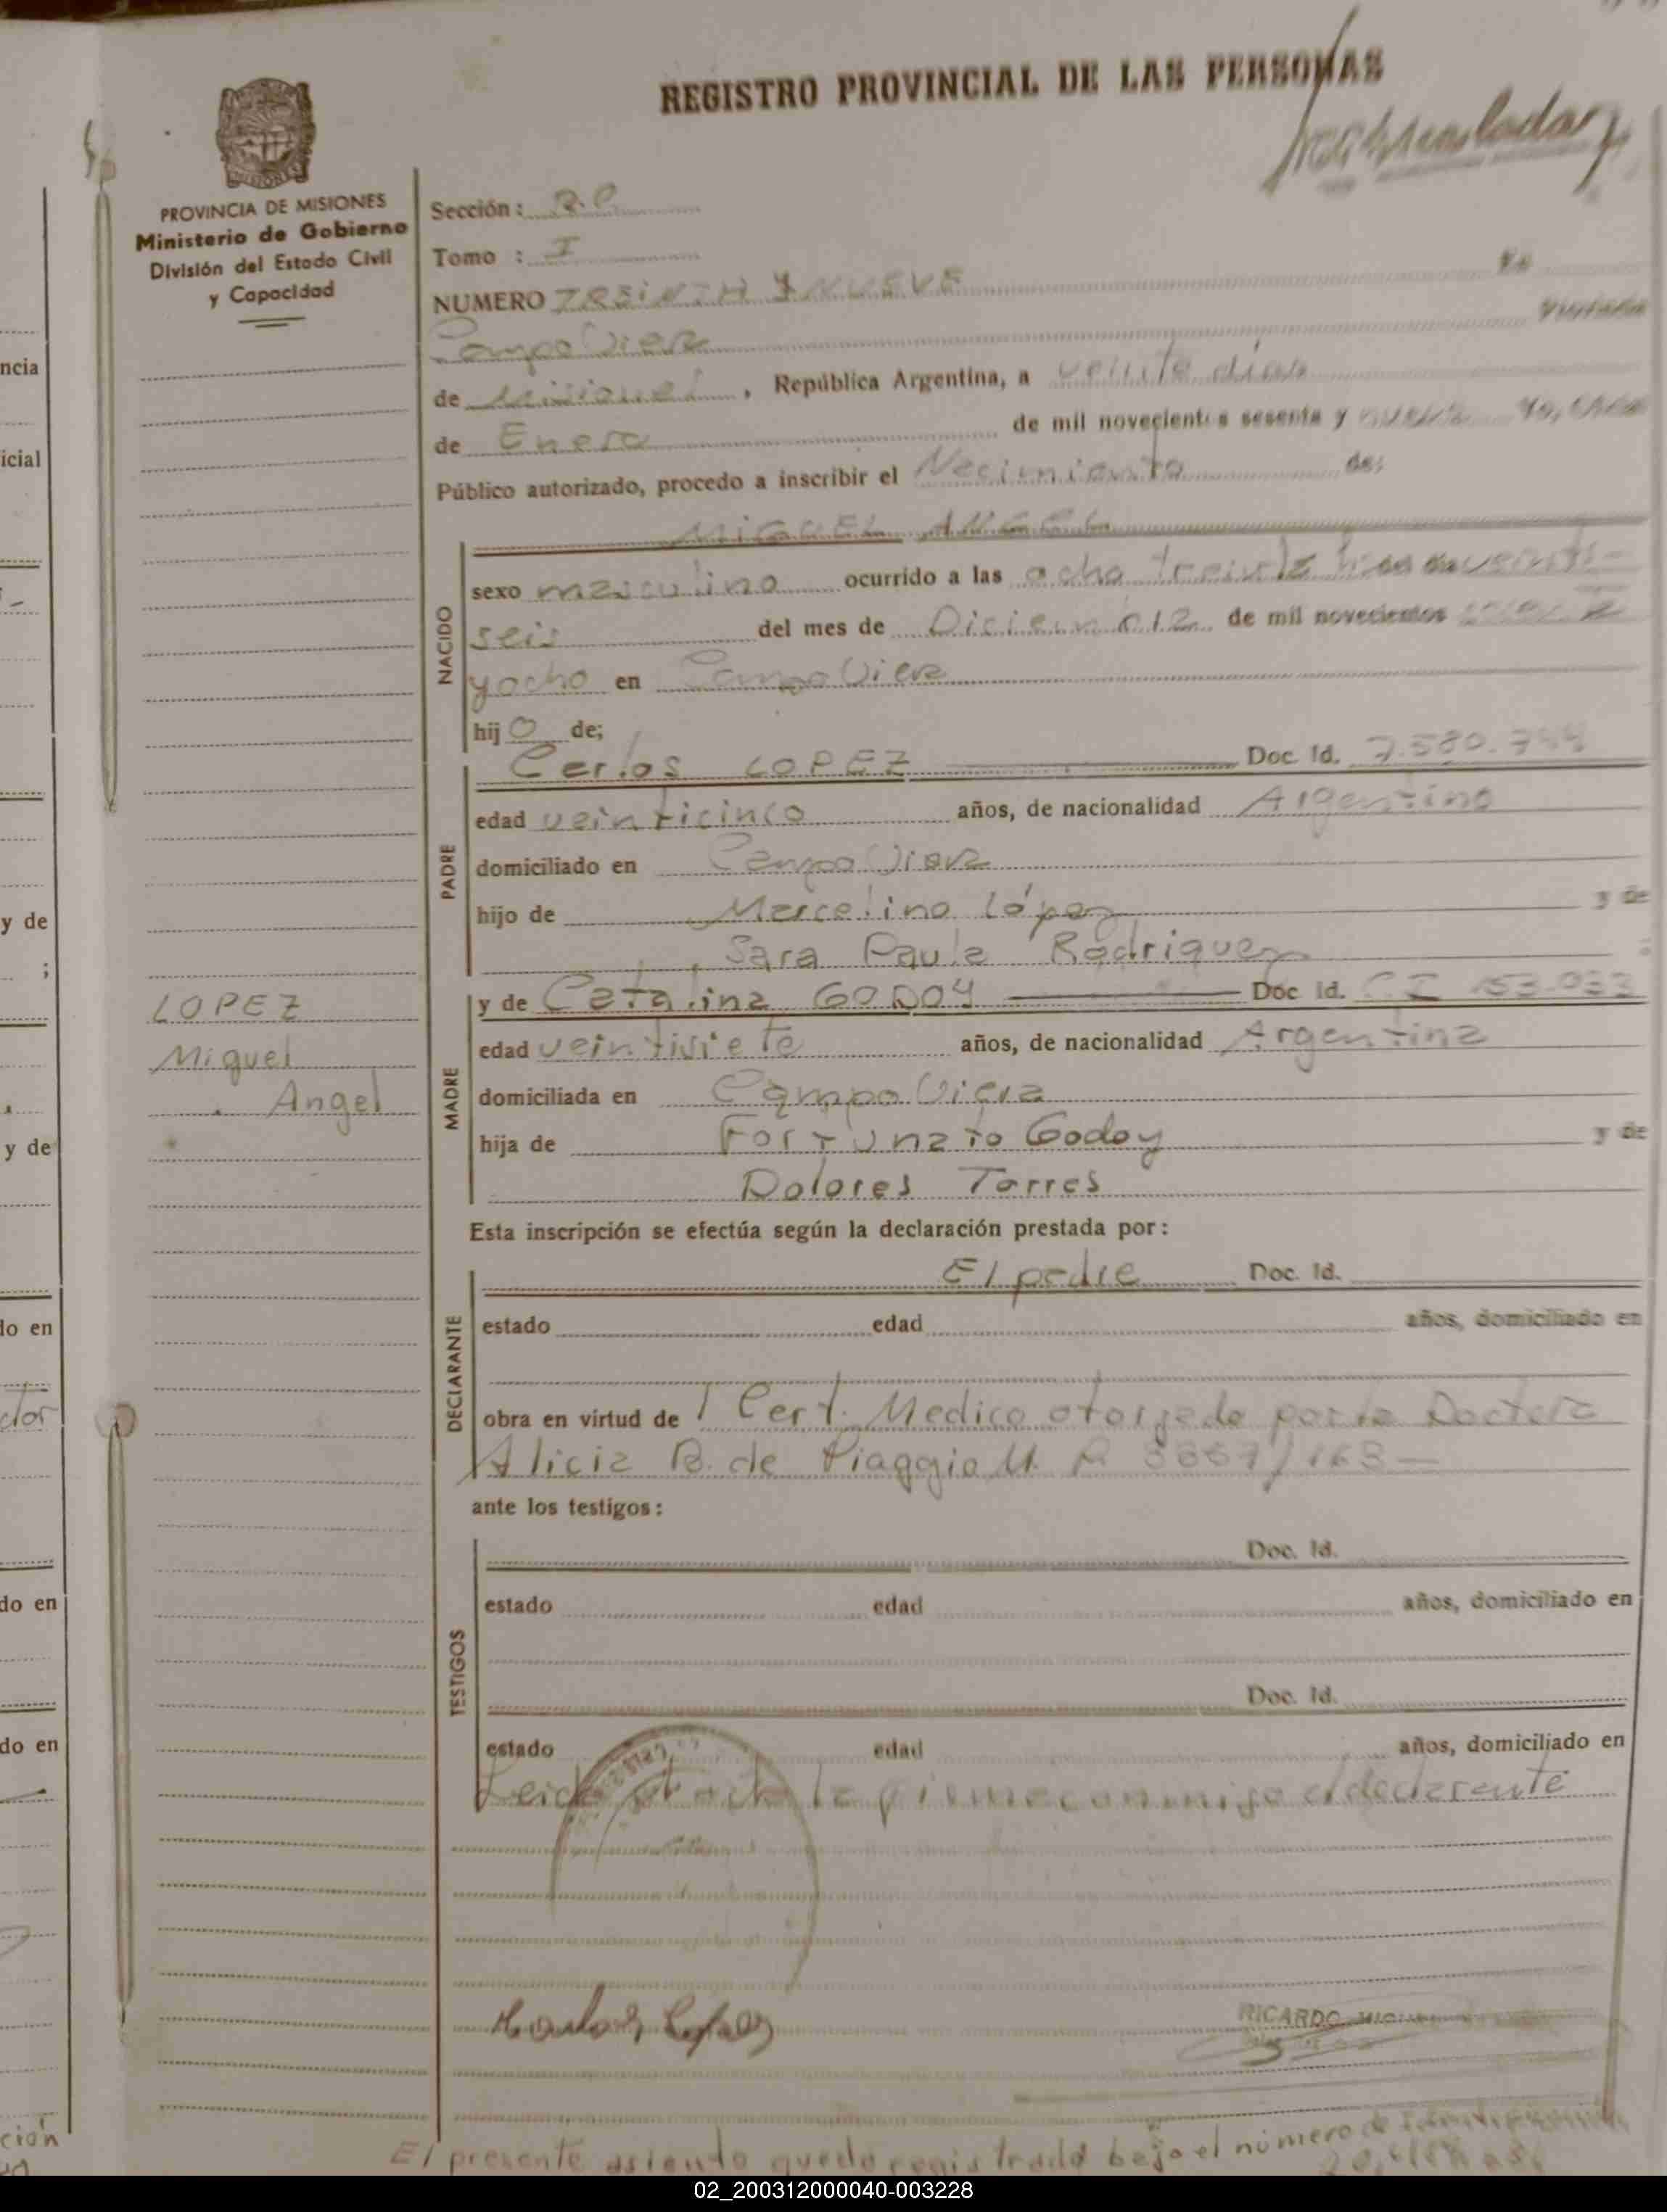 REGISTRO PROVINCIAL DE LAS PERSONAS
PROVINCIA DE MISIONES
Ministerio de Gobierno
División del Estado Civil
y Capacidad
Sección:
Tomo : I
NUMERO TREINTA Y NUEVE En
Campo Viera
de Misiones, República Argentina, a veinte días
de Enero de mil novecientos sesenta y nueve Yo,
Público autorizado, procedo a inscribir el Nacimiento de:
MIGUEL ANGEL
NACIDO
sexo masculino ocurrido a las ocho treinta
seis del mes de Diciembre de mil novecientos
yocho en Campo Viera
hijo de;
PADRE
Carlos LOPEZ Doc. Id. 7.580.744
edad veinticinco años, de nacionalidad Argentino
domiciliado en Campo Viera
hijo de Marcelino López y de
Sara Paula Rodriguez
MADRE
y de Catalina GODOY Doc. Id. CI
edad veintisiete años, de nacionalidad Argentina
domiciliada en Campo Viera
hija de Fortunato Godoy y de
Dolores Torres
LOPEZ
Miguel
Angel
Esta inscripción se efectúa según la declaración prestada por:
DECLARANTE
El padre Doc. Id.
estado edad años, domiciliado en
obra en virtud de 1 Cert. Medico otorgado por la Doctora
Alicia B. de Piaggio M.
ante los testigos:
TESTIGOS
Doc. Id.
estado edad años, domiciliado en
Doc. Id.
estado edad años, domiciliado en
Leida el acta la firma conmigo el declarante
Carlos Lopez
RICARDO
El presente asiento queda registrado bajo el número de
ncia
icial
y de
;
y de
do en
ctor
do en
do en
ción
02_200312000040-003228